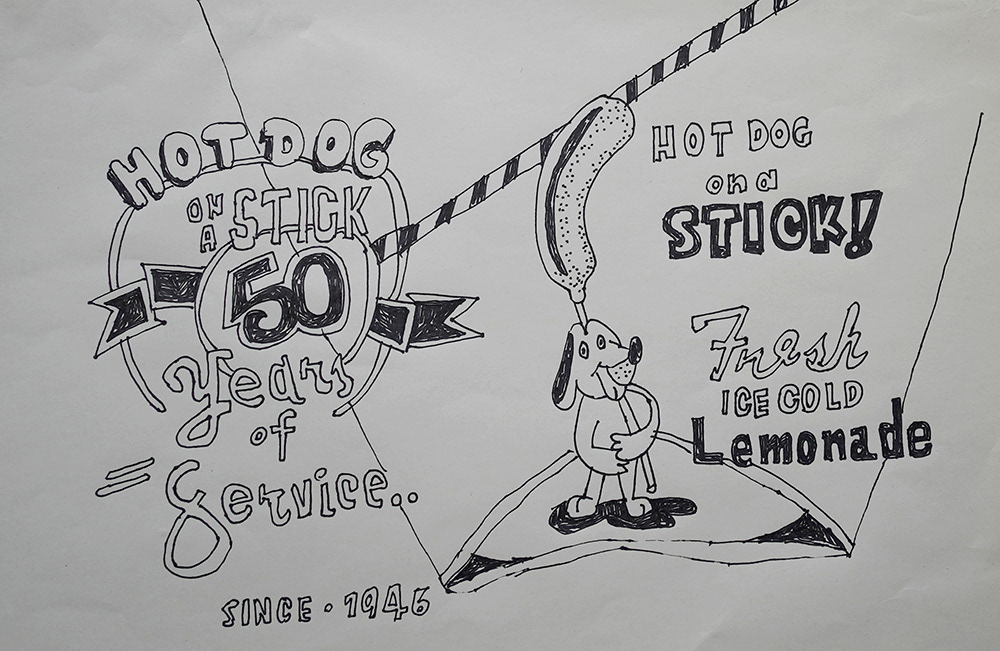 HOT DOG
ON A STICK
50
Years
of
Service..
SINCE • 1946
HOT DOG
on a
STICK!
Fresh
ICE COLD
Lemonade